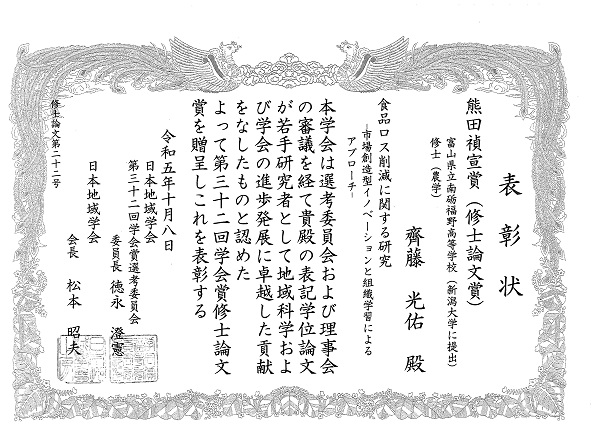 表彰状
熊田禎宣賞(修士論文賞)
富山県立南砺福野高等学校(新潟大学に提出)
修士(農学)
齊藤 光佑 殿
食品ロス削減に関する研究
-市場創造型イノベーションと組織学習による
アプローチ-
本学会は選考委員会および理事会
の審議を経て貴殿の表記学位論文
が若手研究者として地域科学およ
び学会の進歩発展に卓越した貢献
をなしたものと認めた
よって第三十二回学会賞修士論文
賞を贈呈しこれを表彰する
令和五年十月八日
日本地域学会
第三十二回学会賞選考委員会
委員長 徳永 澄憲
日本地域学会
会長 松本 昭夫
修士論文第二十二号